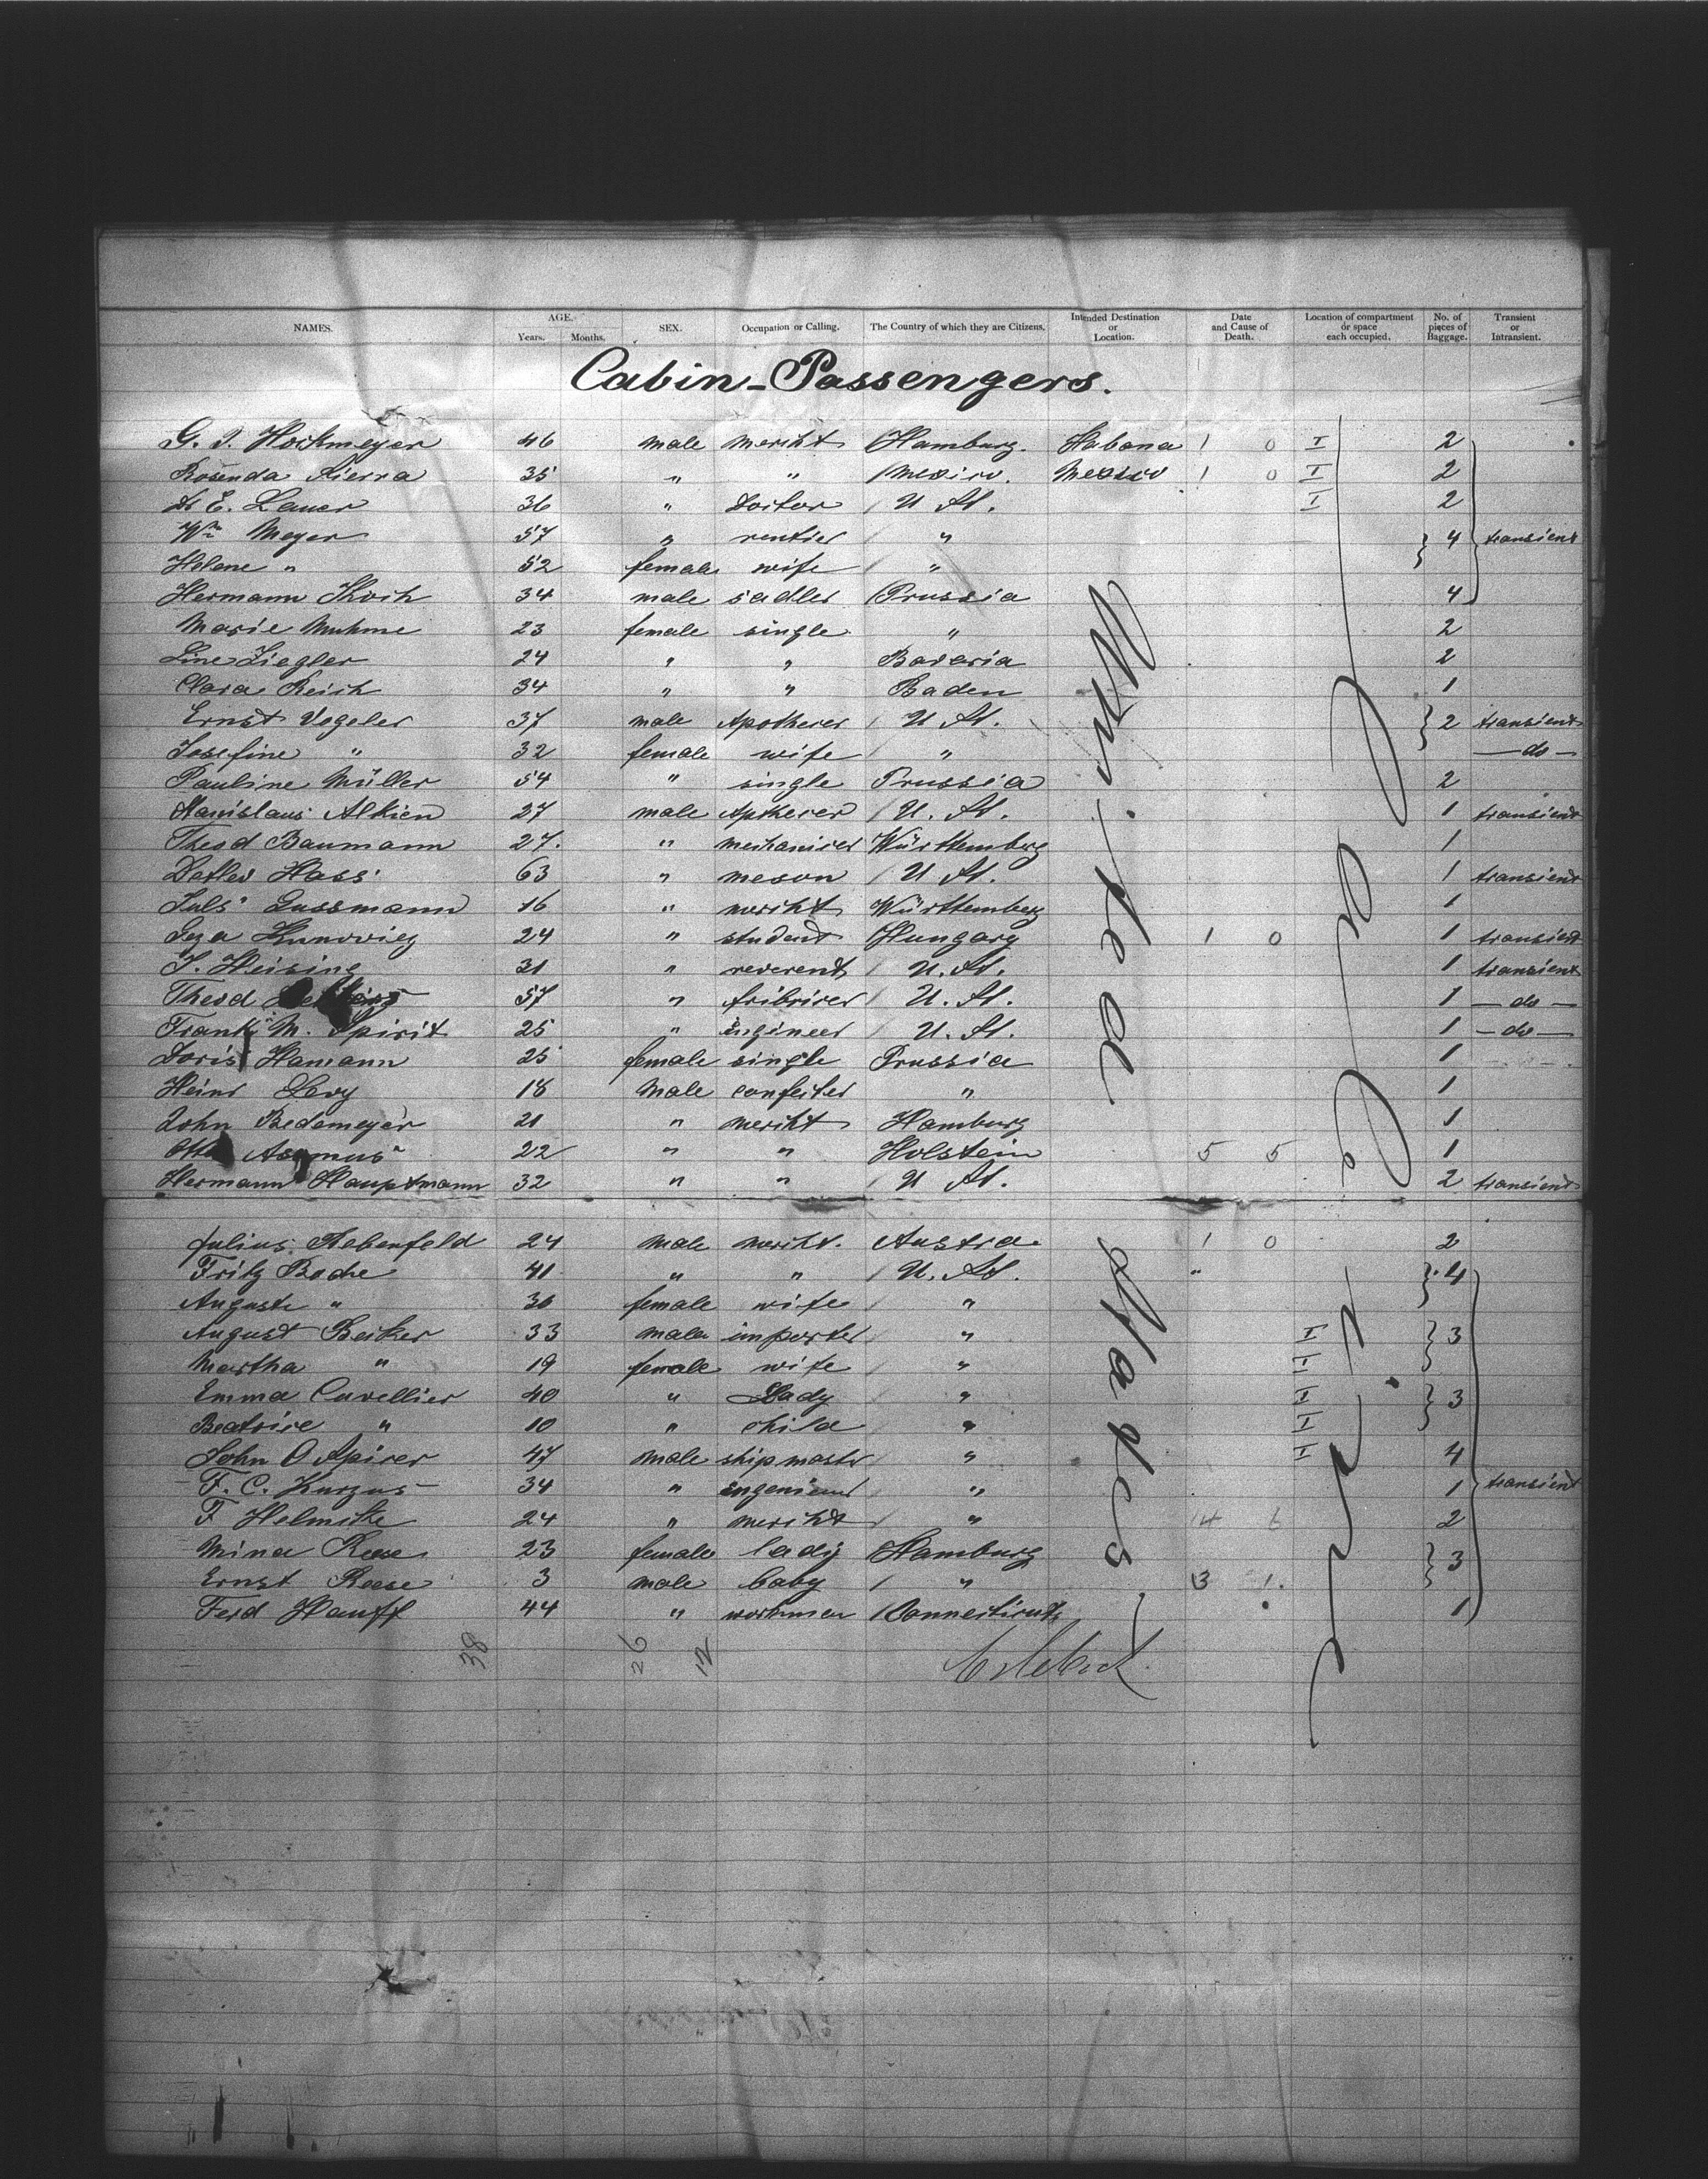 NAMES. AGE. Years. Months. SEX. Occupation or Calling. The Country of which they are Citizens. Intended Destination or Location. Date and Cause of Death. Location of compartment or space each occupied. No. of pieces of Baggage. Transient or Intransient.
Cabin-Passengers.
G. J. Hockmeyer 46 male mercht Hamburg. Habana 1 0 I 2
Rosenda Sierra 35 " " Mexico. Mexico 1 0 I 2
Dr E. Lauer 36 " Doctor U St. I 2
Wm Meyer 57 " rentier " 4 transient
Helene " 52 female wife "
Hermann Koch 34 male sadler Prussia 4
Marie Muhme 23 female single " 2
Line Ziegler 24 " " Bavaria 2
Clara Reich 34 " " Baden 1
Ernst Vogeler 37 male Apothecer U St. 2 transient
Josefine " 32 female wife " — do —
Pauline Müller 54 " single Prussia 2
Stanislaus Alkien 27 male Apthecer U. St. 1 transient
Theod Baumann 27. " mechanicer Württemberg 1
Detlev Hass 63 " meson U St. 1 transient
Juls Gussmann 16 " mercht Württemberg 1
Geza 24 " student Hungary 1 0 1 transient
J. Heising 31 " reverent U. St. 1 transient
Theod 57 " fribricer U. St. 1 — do —
Frank M. Spirit 25 " engineer U. St. 1 — do —
Doris Hamann 25 female single Prussia 1
Heinr Levy 18 male confeiter " 1
John Bedemeyer 21 " mercht Hamburg 1
Otto Assmus 22 " " Holstein 5 5 1
Hermann Hauptmann 32 " " U St. 2 transient
Julius Aebenfeld 24 male mercht. Austria. 1 0 2
Fritz Bode 41 " " U. St. " 4
Auguste " 36 female wife "
August Becker 33 male importer " I 3
Martha " 19 female wife " I
Emma Cuvellier 40 " Lady " I 3
Beatrice " 10 " child " I
John O Spicer 47 male shipmaster " I 4
F. C. Kurzus 34 " ingenieur " 1 transient
F Helmcke 24 " mercht " 14 6 2
Mina Reese 23 female lady Hamburg 3
Ernst Reese 3 male baby " 13 1.
Ferd Hauff 44 " workman Connecticut 1
United States.
38 26 12